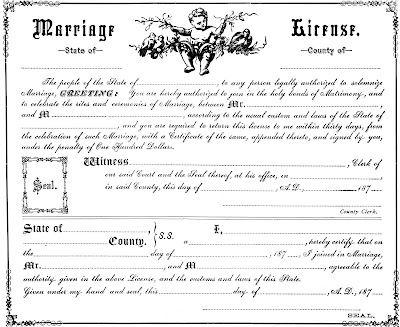 Marriage License.
State of County of
The people of the State of , to any person legally authorized to solemnize
Marriage, GREETING: You are hereby authorized to join in the holy bonds of Matrimony, and
to celebrate the rites and ceremonies of Marriage, between Mr.
and M , according to the usual custom and laws of the State of
, and you are required to return this license to me within thirty days, from
the celebration of such Marriage, with a Certificate of the same, appended thereto, and signed by you,
under the penalty of One Hundred Dollars.
Seal.
Witness , Clerk of
our said Court and the Seal thereof, at his office, in
in said County, this day of , A.D. 187
County Clerk.
State of
County. } S.S. I,
a , hereby certify that on
the day of , 187 I joined in Marriage,
Mr. , and M , agreeable to the
authority given in the above License, and the customs and laws of this State.
Given under my hand and seal, this day of , A.D. 187
SEAL.